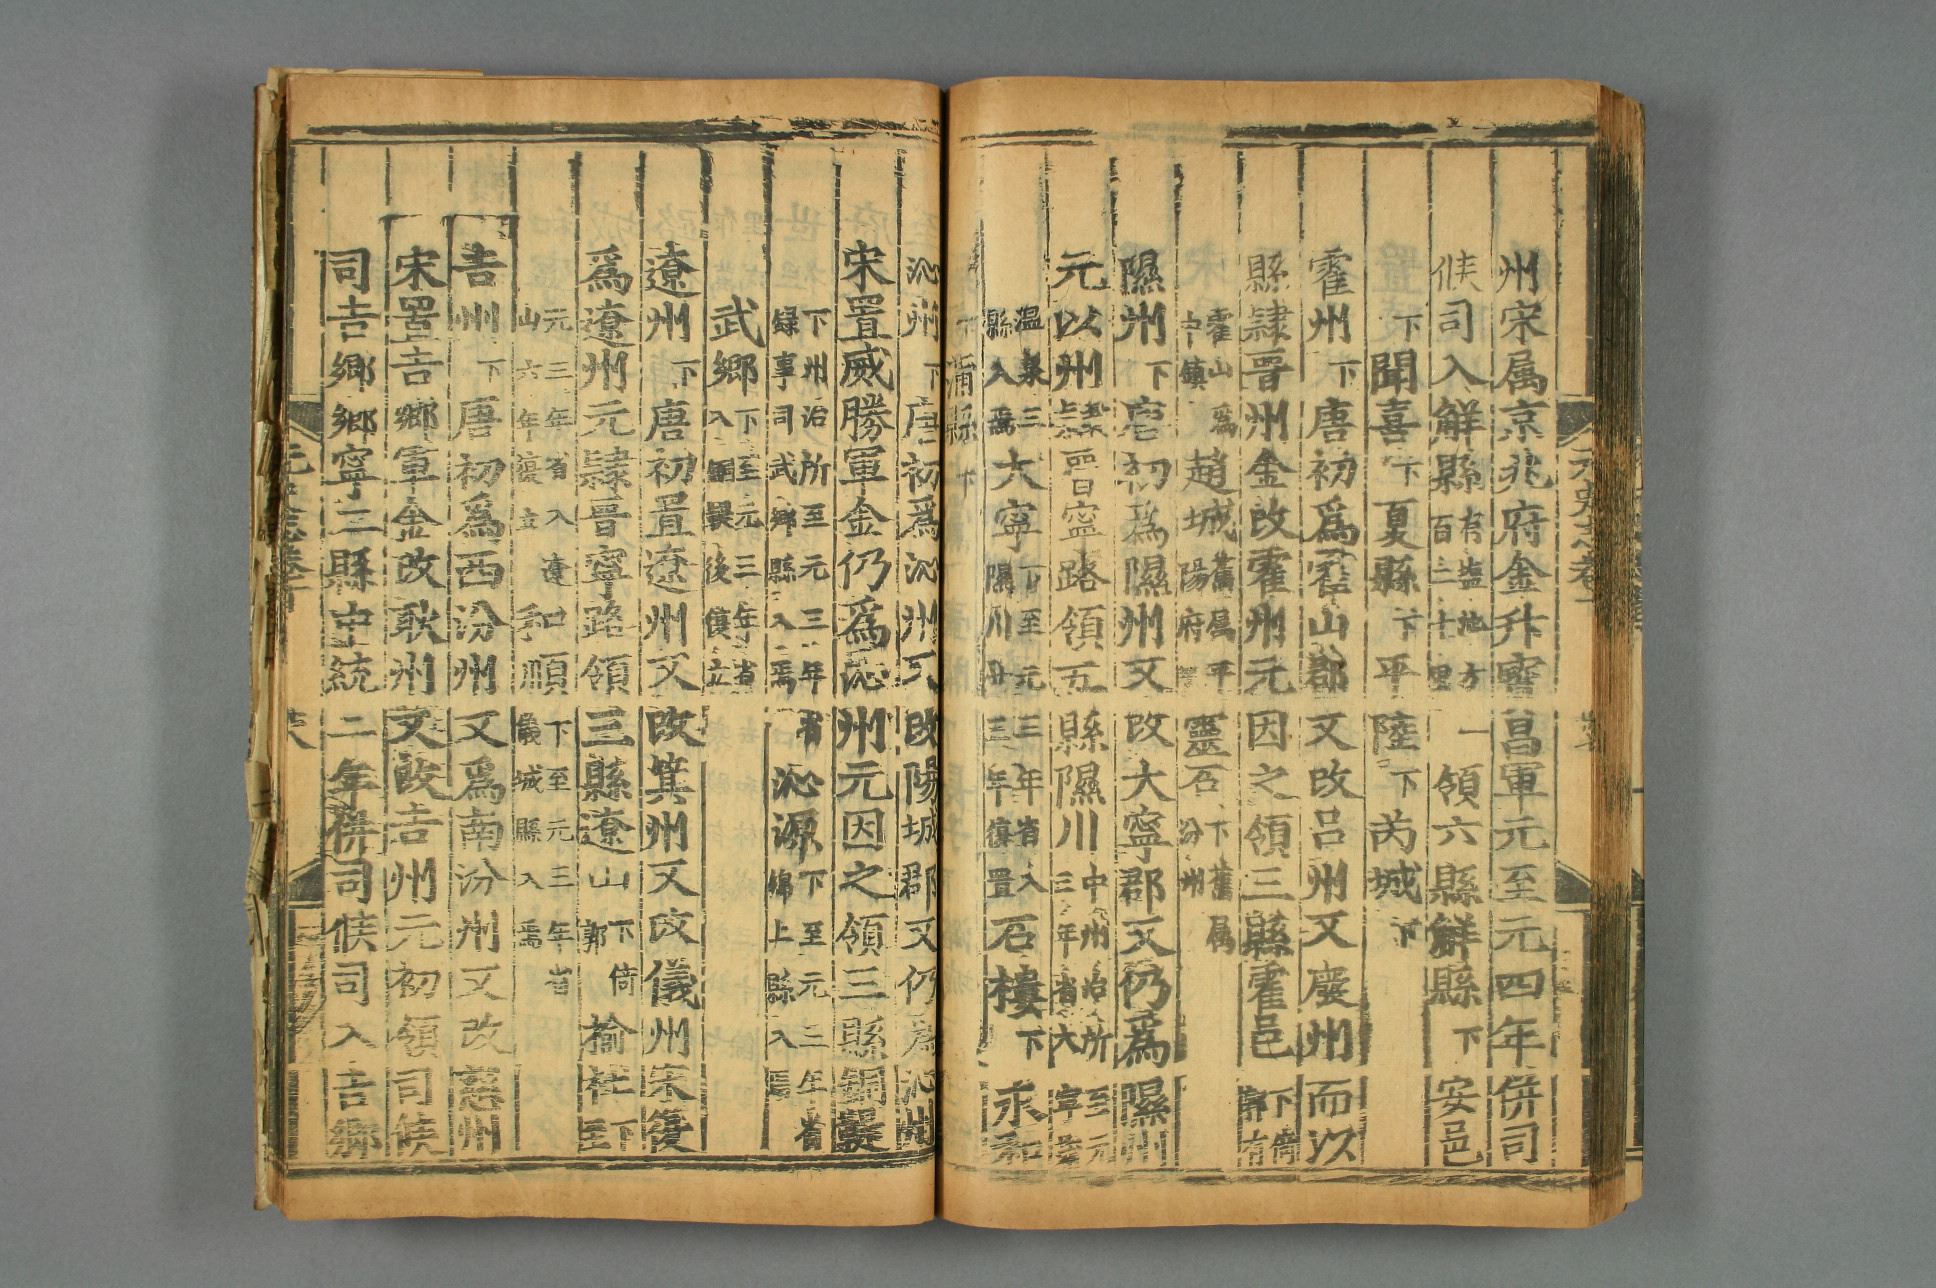 州宋属京兆府金升寳昌軍元至元四年併司
候司入解縣有塩池方百二十里一領六縣解縣下安邑
下聞喜下夏縣下平陸下芮城下
霍州下唐初爲霍山郡又改吕州又廢州而以
縣隷晋州金改霍州元因之領三縣霍邑下倚郭有
霍山爲中鎮趙城舊属平陽府靈石下舊属汾州
隰州下唐初爲隰州又改大寧郡又仍爲隰州
元以州隷晋寧路領五縣隰川中州治所至元三年省大寧蒲
温泉三縣入焉大寧下至元三年省入隰川廿三年復置石樓下永和
下蒲縣下
沁州下唐初爲沁州又改陽城郡又仍爲沁州
宋置威勝軍金仍爲沁州元因之領三縣銅鞮
下州治所至元三年省録事司武鄉縣入焉沁源下至元三年省綿上縣入焉
武鄉下至元三年省入銅鞮後復立
遼州下唐初置遼州又改箕州又改儀州宋復
爲遼州元隷晋寧路領三縣遼山下倚郭榆社下至
元三年省入遼山六年復立和順下至元三年省儀城縣入焉
吉州下唐初爲西汾州又爲南汾州又改慈州
宋置吉鄉軍金改耿州又改吉州元初領司候
司吉鄉鄉寧二縣中統二年併司候司入吉鄉
元史志卷十 廿六